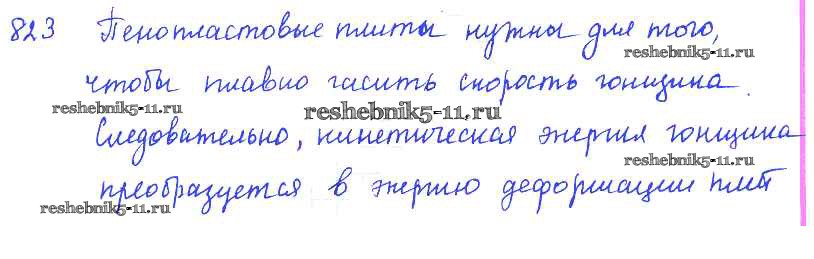 823 Пенопластовые плиты нужны для того,
reshebnik5-11.ru
чтобы плавно гасить скорость гонщика.
reshebnik5-11.ru
reshebnik5-11.ru
Следовательно, кинетическая энергия гонщика
reshebnik5-11.ru
преобразуется в энергию деформации плит
reshebnik5-11.ru